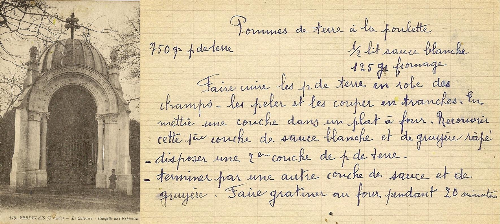 Pommes de terre à la poulette.
750 gr p de terre
1/2 lit sauce blanche
125 gr fromage
Faire cuire les p. de terre en robe des
champs - les peler et les couper en tranches. En
mettre une couche dans un plat à four. Recouvrir
cette 1ère couche de sauce blanche et de gruyère râpé
- disposer une 2me couche de p de terre.
- terminer par une autre couche de sauce et de
gruyère. Faire gratiner au four pendant 20 minutes